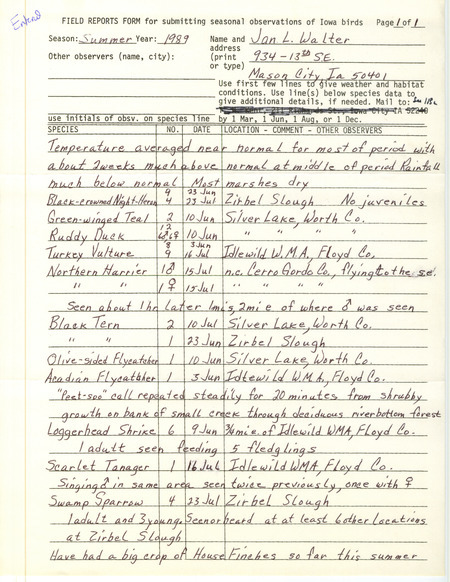 Entered
FIELD REPORTS FORM for submitting seasonal observations of Iowa birds Page 1 of 1
Season: Summer Year: 1989 Name and Jan L. Walter
Other observers (name, city): address
(print 934-13th SE.
or type)
Mason City Ia 50401
Use first few lines to give weather and habitat
conditions. Use line(s) below species data to
give additional details, if needed. Mail to:
use initials of obsv. on species line by 1 Mar, 1 Jun, 1 Aug, or 1 Dec.
SPECIES NO. DATE LOCATION - COMMENT - OTHER OBSERVERS
Temperature averaged near normal for most of period with
about 2 weeks much above normal at middle of period Rainfall
much below normal Most marshes dry
9 23 Jun
Black-crowned Night-Heron 4 23 Jul Zirbel Slough No juveniles
Green-winged Teal 2 10 Jun Silver Lake, Worth Co.
12
Ruddy Duck 6♂6♀ 10 Jun " " " "
8 3 Jun
Turkey Vulture 9 16 Jul Idlewild W.M.A, Floyd Co.
Northern Harrier 1♂ 15 Jul n.c. Cerro Gordo Co., flying to the s.e.
" " 1♀ 15 Jul " " " "
Seen about 1 hr later 1 mi s, 2 mi e of where ♂ was seen
Black Tern 2 10 Jul Silver Lake, Worth Co.
" " 1 23 Jun Zirbel Slough
Olive-sided Flycatcher 1 10 Jun Silver Lake, Worth Co.
Acadian Flycatcher 1 3 Jun Idlewild W.M.A, Floyd Co.
"Peet-soo" call repeated steadily for 20 minutes from shrubby
growth on bank of small creek through deciduous riverbottom forest
Loggerhead Shrike 6 9 Jun 3/4 mi e. of Idlewild WMA, Floyd Co.
1 adult seen feeding 5 fledglings
Scarlet Tanager 1 16 Jul Idlewild WMA, Floyd Co.
Singing ♂ in same area seen twice previously, once with ♀
Swamp Sparrow 4 23 Jul Zirbel Slough
1 adult and 3 young. Seen or heard at at least 6 other locations
at Zirbel Slough
Have had a big crop of House Finches so far this summer